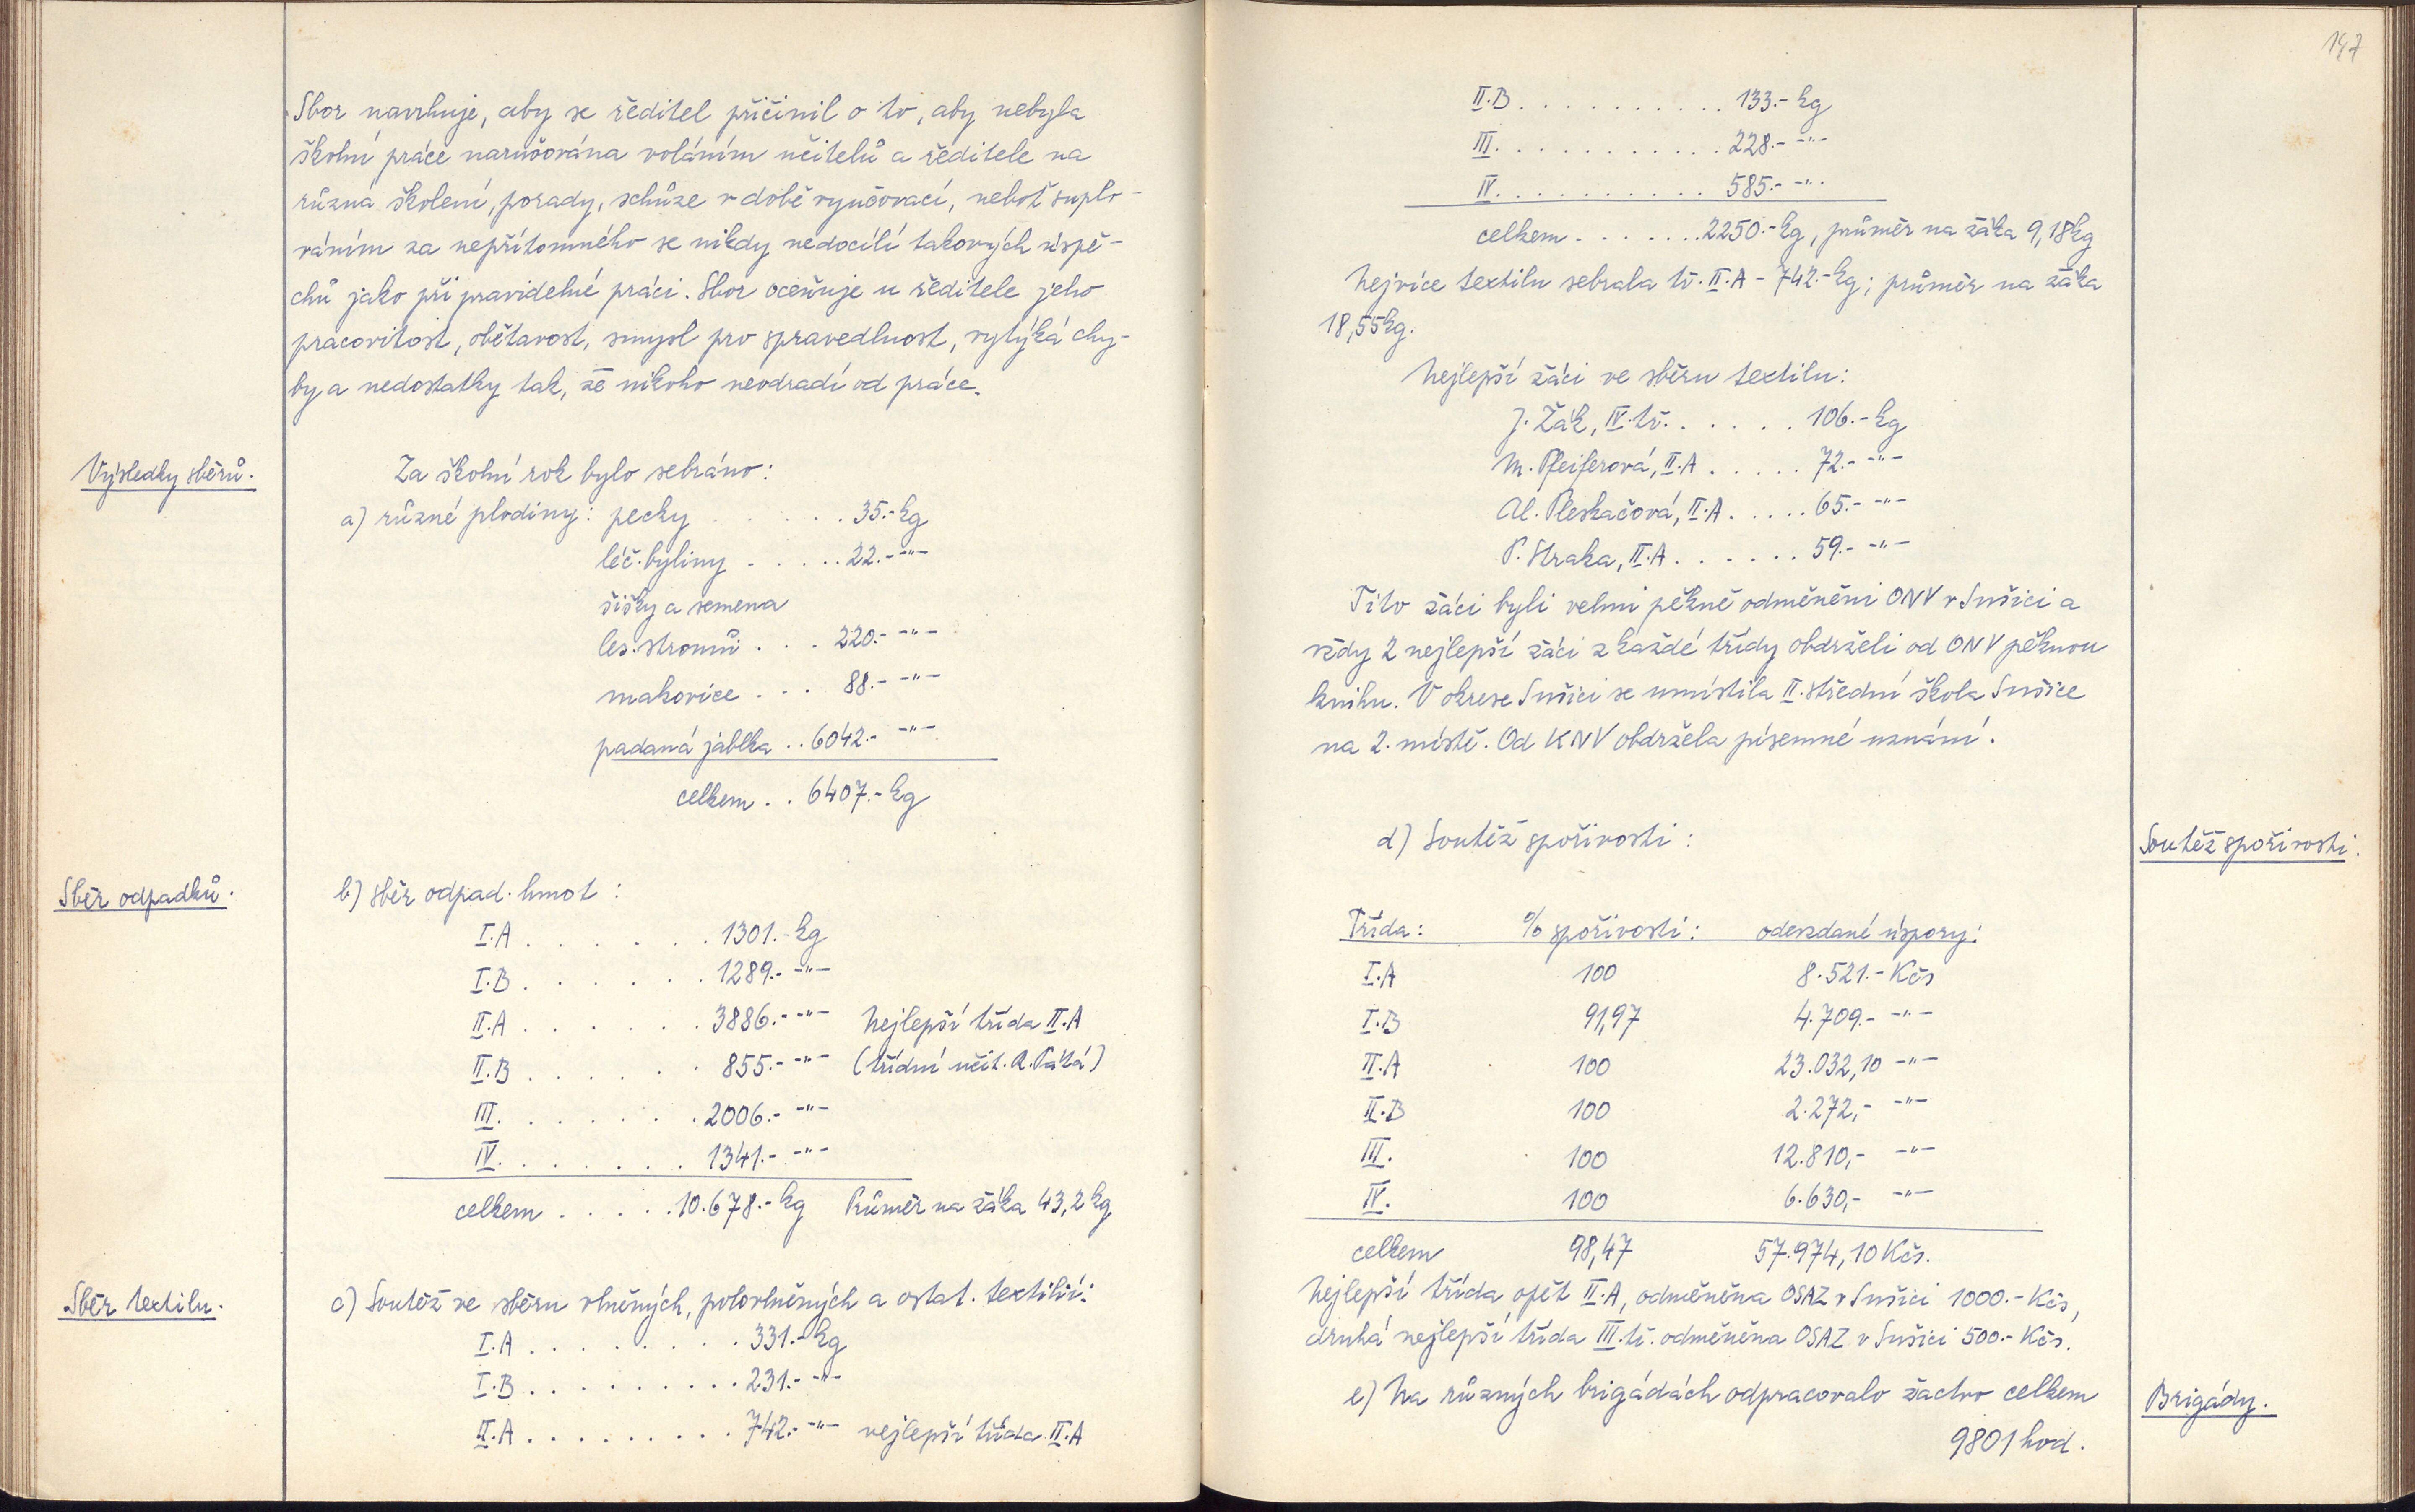 Sbor navrhuje, aby se ředitel přičinil o to, aby nebyla
školní práce narušována voláním učitelů a ředitele na
různá školení, porady, schůze v době vyučovací, neboť suplo-
váním za nepřítomného se nikdy nedocílí takových úspě-
chů jako při pravidelné práci. Sbor oceňuje u ředitele jeho
pracovitost, obětavost, smysl pro spravedlnost, vytýká chy-
by a nedostatky tak, že nikoho neodradí od práce.
Výsledky sběrů.
Za školní rok bylo sebráno:
a) různé plodiny: pecky . . . . . 35.- kg
léč. byliny . . . . . 22.- -"-
šišky a semena
les. stromů . . . 220.- -"-
makovice . . . 88.- -"-
padaná jablka . . 6042.- -"-
celkem . . 6407.- kg
Sběr odpadků.
b) sběr odpad. hmot :
I.A . . . . . . . 1301.- kg
I.B . . . . . . . 1289.- -"-
II.A . . . . . . . 3886.- -"- Nejlepší třída II.A
II.B . . . . . . 855.- -"- (třídní učit. R. Pátá)
III. . . . . . . . 2006.- -"-
IV. . . . . . . . 1341.- -"-
celkem . . . . . 10.678.- kg Průměr na žáka 43,2 kg
Sběr textilu.
c) Soutěž ve sběru vlněných, polovlněných a ostat. textilií:
I.A . . . . . . . . . 331.- kg
I.B . . . . . . . . . 231.- -"-
II.A . . . . . . . . . 742.- -"- nejlepší třída II.A
147
II.B . . . . . . . . . . 133.- kg
III. . . . . . . . . . . 228.- -"-
IV. . . . . . . . . . . 585.- -"-
celkem . . . . . . . 2250.- kg, průměr na žáka 9,18kg
Nejvíce textilu sebrala tř. II.A - 742.- kg; průměr na žáka
18,55kg.
Nejlepší žáci ve sběru textilu:
J. Žák, IV. tř. . . . . . 106.- kg
M. Pfeiferová, II.A . . . . . 72.- -"-
Al. Pleskačová, II.A . . . . . 65.- -"-
P. Straka, II.A . . . . . . 59.- -"-
Tito žáci byli velmi pěkně odměněni ONV v Sušici a
vždy 2 nejlepší žáci z každé třídy obdrželi od ONV pěknou
knihu. V okrese Sušici se umístila II. střední škola Sušice
na 2. místě. Od KNV obdržela písemné uznání.
d) Soutěž spořivosti :
Soutěž spořivosti.
Třída: % spořivosti: odevzdané úspory:
I.A 100 8.521.- Kčs
I.B 91,97 4.709.- -"-
II.A 100 23.032,10 -"-
II.B 100 2.272,- -"-
III. 100 12.810,- -"-
IV. 100 6.630,- -"-
celkem 98,47 57.974,10 Kčs.
Nejlepší třída opět II.A, odměněna OSAZ v Sušici 1000.- Kčs,
druhá nejlepší třída III. tř. odměněna OSAZ v Sušici 500.- Kčs.
e) Na různých brigádách odpracovalo žactvo celkem
Brigády.
9801 hod.